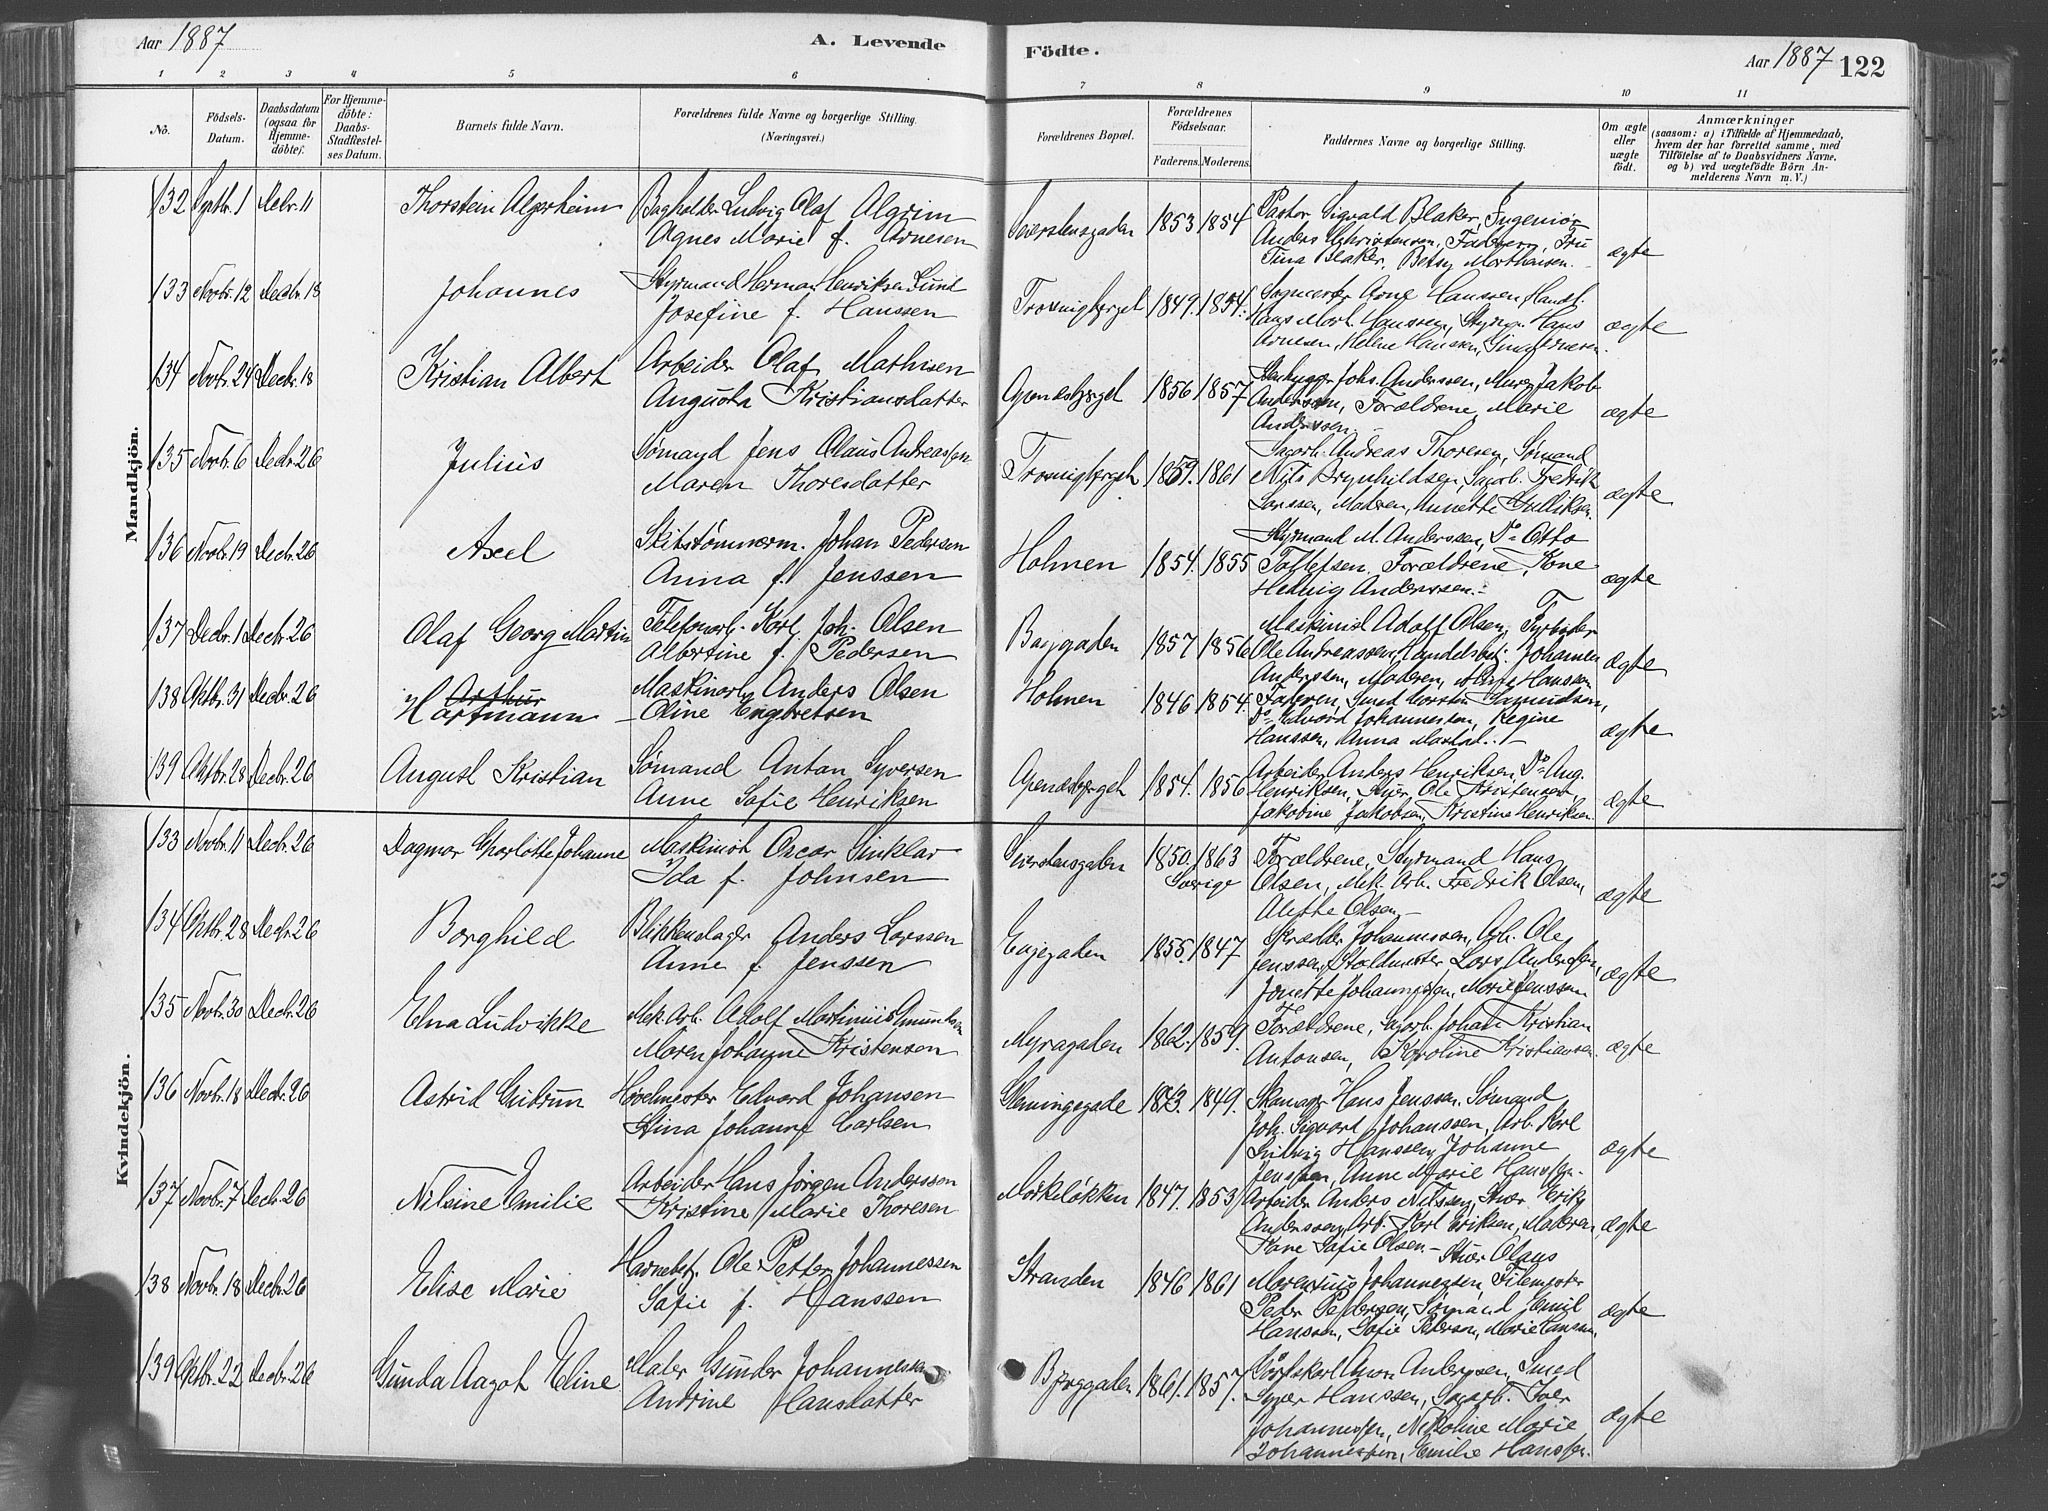 Aar 1887
A. Levende
Födte.
Aar 1887
122
1 2 3 4 5 6 7 8 9 10 11
No.
Födsels-
Datum.
Daabsdatum
(ogsaa for
Hjemme-
döbte).
For Hjemme-
döbte:
Daabs-
Stadfæstel-
ses Datum.
Barnets fulde Navn.
Forældrenes fulde Navne og borgerlige Stilling.
(Næringsvei.)
Forældrenes Bopæl.
Forældrenes
Födselsaar.
Faderens. Moderens.
Faddernes Navne og borgerlige Stilling.
Om ægte
eller
uægte
födt.
Anmærkninger
(saasom: a) i Tilfælde af Hjemmedaab,
hvem der har forrettet samme, med
Tilföielse af to Daabsvidners Navne,
og b) ved uægtefödte Börn An-
melderens Navn m. V.)
Mandkjön.
132 Septbr. 1 Decbr. 11 Thorstein Algerheim
Bagholder Ludvig Olaf Algrim
Agnes Marie f. Arnesen
Seierstensgaden 1853 1854
Pastor Sigvald Blaker, Ingeniør
Anders Christensen, Faderen, Fru
Tina Blaker, Betsy Morthensen.
ægte
133 Novbr. 12 Decbr. 18 Johannes
Styrmand Herman Henriksen Lund
Josefine f. Hanssen
Trosvigberget 1849. 1854.
Arne Hanssen, Handl.
Hans Mort. Hanssen, Styrm. Hans
Arnesen, Helene Hanssen,
ægte
134 Novbr. 24 Decbr. 18 Kristian Albert
Arbeider Olaf Mathisen
Augusta Kristiansdatter
Apenesberget 1856 1857
Stenhugger Johs. Anderssen, Murer Jakob
Anderssen, Forældrene, Marie
Anderssen.
ægte
135 Novbr. 6 Decbr. 26 Julius
Sømand Jens Olaus Andreassen
Maren Thoresdatter
Trosvigberget 1859. 1861
Sagarb. Andreas Thoresen, Sømand
Nils Brynhildsen, Sagarb. Fredrik
Larssen, Moderen, Annette Gulliksen.
ægte
136 Novbr. 19 Decbr. 26 Axel
Skibstømmerm. Johan Pedersen
Anna f. Jenssen
Holmen 1854. 1855
Styrmand M. Anderssen, Do Otto
Tollefsen, Forældrene, Kone
Hedvig Anderssen.
ægte
137 Decbr. 1 Decbr. 26 Olaf Georg Martin
Telefonarb. Karl Joh. Olsen
Albertine f. Pedersen
Baggaden 1857 1856
Maskinist Adolf Olsen, Fyrbøder
Ole Andreassen, Handelsbetj. Johannes
Anderssen, Moderen, Hanssen
ægte
138 Oktbr. 31 Decbr. 26 Arthur
Hartmann
Maskinarb. Anders Olsen
Oline Engbretsen
Holmen 1846 1854.
Faderen, Smed Torsten Samuelsen,
Do Edvard Johannessen, Regine
Hanssen, Anna Mostad.
ægte
139 Oktbr. 28 Decbr. 26 August Kristian
Sømand Anton Syversen
Anne Sofie Henriksen
Apenesberget 1854. 1856
Arbeider Anders Henriksen, Do Aug.
Henriksen, Ole Kristensen
Jakobine Jakobsen, Kristine Henriksen
ægte
Kvindekjön.
133 Novbr. 11 Decbr. 26 Dagmar Charlotte Johanne
Maskinist Oscar Sinklar
Ida f. Johnsen
Seierstensgaden 1850. 1863
Sverige
Forældrene, Styrmand Hans
Olsen, Mek. Arb. Fredrik Olsen,
Alethe Olsen
ægte
134 Oktbr. 28 Decbr. 26 Borghild
Blikkenslager Anders Larssen
Anne f. Jenssen
Engegaden 1855. 1847
Skrædder Johannessen, Arb. Ole
Jenssen, Staldmester Lars Anderssen,
Jonette Johannessen, Marie Jenssen
ægte
135 Novbr. 30 Decbr. 26 Elna Ludvikke
Mek. Arb. Adolf Martinius Amundsen
Maren Johanne Kristensen
Myragaden 1862. 1859.
Forældrene, Sagarb. Johan Kristian
Antonsen, Karoline Kristiansen
ægte
136 Novbr. 18 Decbr. 26 Astrid Gudrun
Høvelmester Edvard Johansen
Stina Johanne Carlsen
Glemmingegade 1843. 1849.
Skomager Hans Jenssen, Sømand
Joh. Sigvart Johanssen, Arb. Karl
Ludvig Hanssen, Johanne
Jenssen, Anne Marie Hanssen
ægte
137 Novbr. 7 Decbr. 26 Nilsine Emilie
Arbeider Hans Jörgen Anderssen
Kristine Marie Thoresen
Mørkeløkken 1847. 1853
Arbeider Anders Nilssen, Erik
Anderssen, Arb. Karl Eriksen, Moderen,
Kone Sofie Olsen
ægte
138 Novbr. 18 Decbr. 26 Elise Marie
Havnebetj. Ole Petter Johannessen
Sofie f. Hanssen
Stranden 1846 1861
Stuer Olaus
Morentius Johannessen, Filemester
Peder Pedersen, Sømand Emil
Hanssen, Sofie Pedersen, Marie Hanssen
ægte
139 Oktbr. 22 Decbr. 26 Gunda Aagot Eline
Maler Gunder Johannessen
Andrine Hansdatter
Bjerggaden 1861. 1857.
Anton Anderssen, Smed
Syver Hanssen, Sagarb. Iver
Johannessen, Nikoline Marie
Johannessen, Emilie Hanssen.
ægte